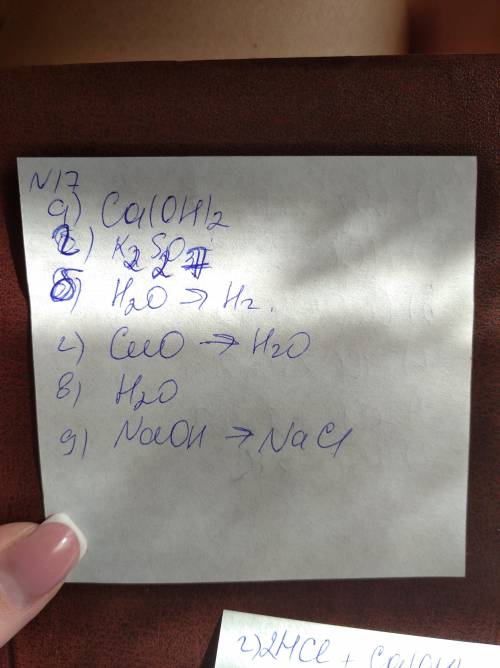 N17
а) Ca(OH)2
K2SO
б) H2O → H2.
г) CuO → H2O
в) H2O
д) NaOH → NaCl
г) 2HCl + Ca(OH